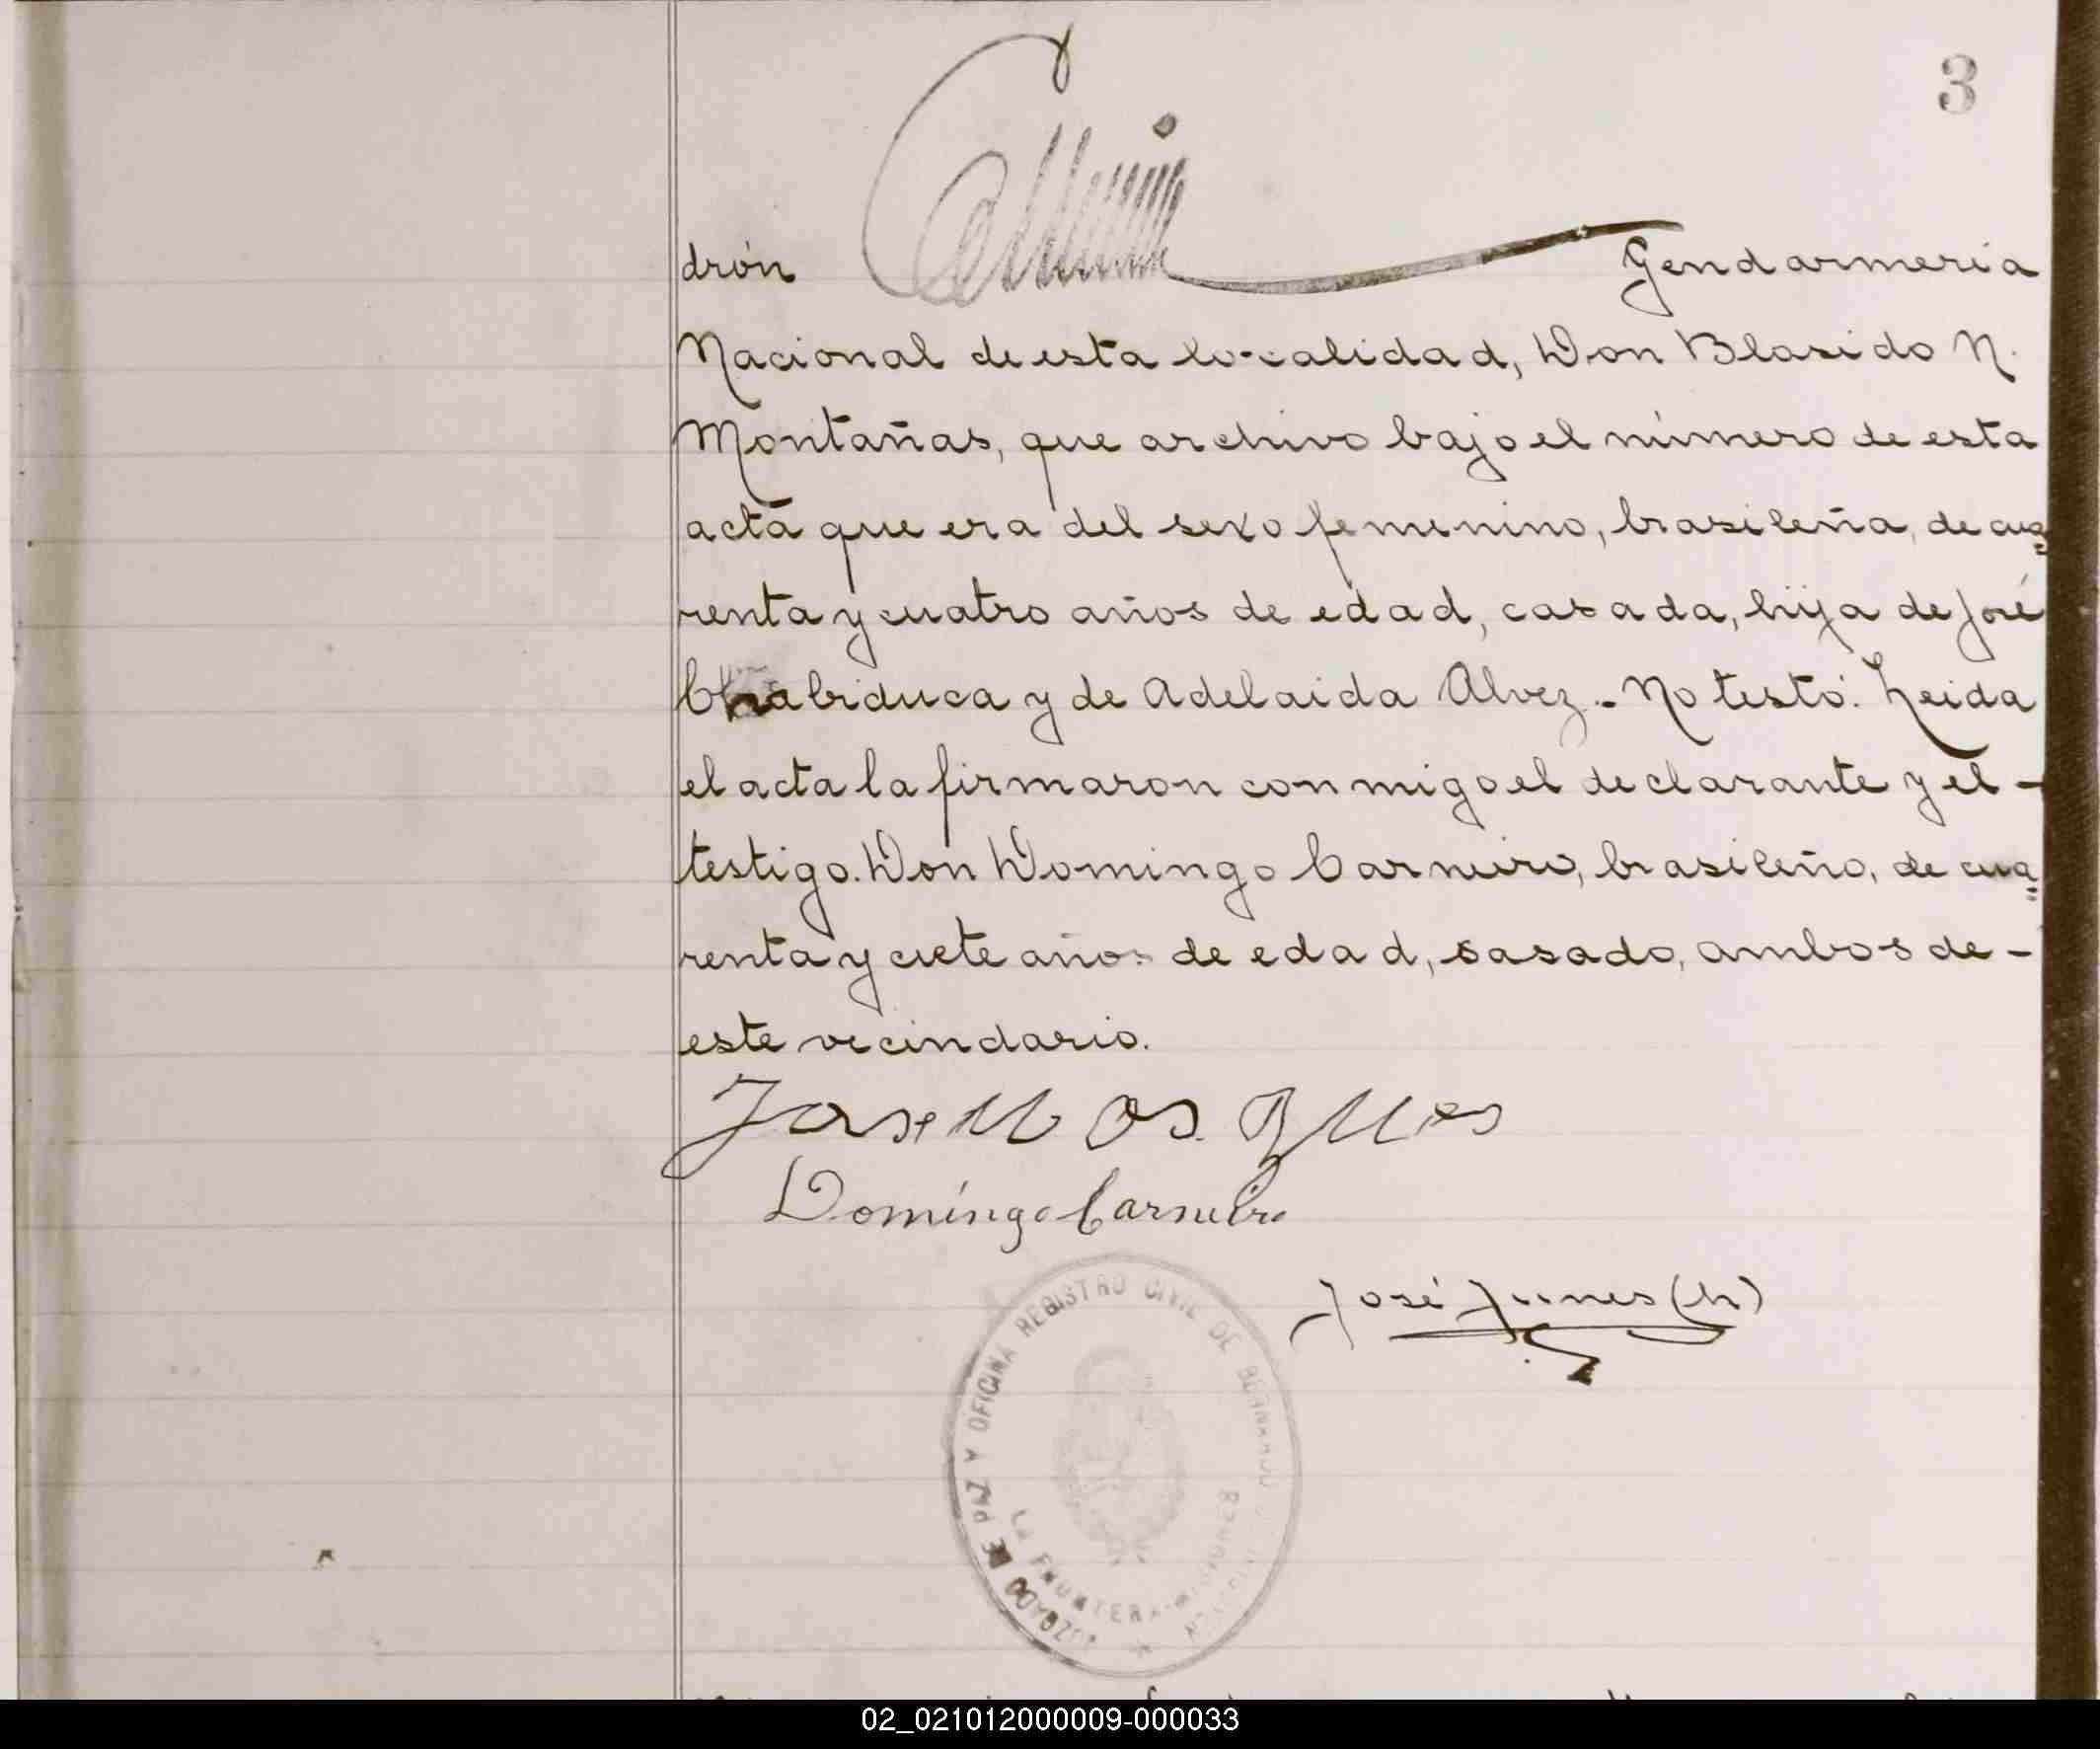 3
drón Gendarmeria
Nacional de esta localidad, Don Blasido N.
Montañas, que archivo bajo el número de esta
acta que era del sexo femenino, brasileña, de cua=
renta y cuatro años de edad, casada, hija de José
y de Adelaida Alvez.- No testó. Leida
el acta la firmaron conmigo el declarante y el -
testigo. Don Domingo Carneiro, brasileño, de cua=
renta y ciete años de edad, casado, ambos de -
este vecindario.
Jose
Domingo Carneiro
José (h)
JUZGADO DE PAZ Y OFICINA REGISTRO CIVIL DE BERNARDO DE IRIGOYEN
LA FRONTERA-MISIONES
02_021012000009-000033